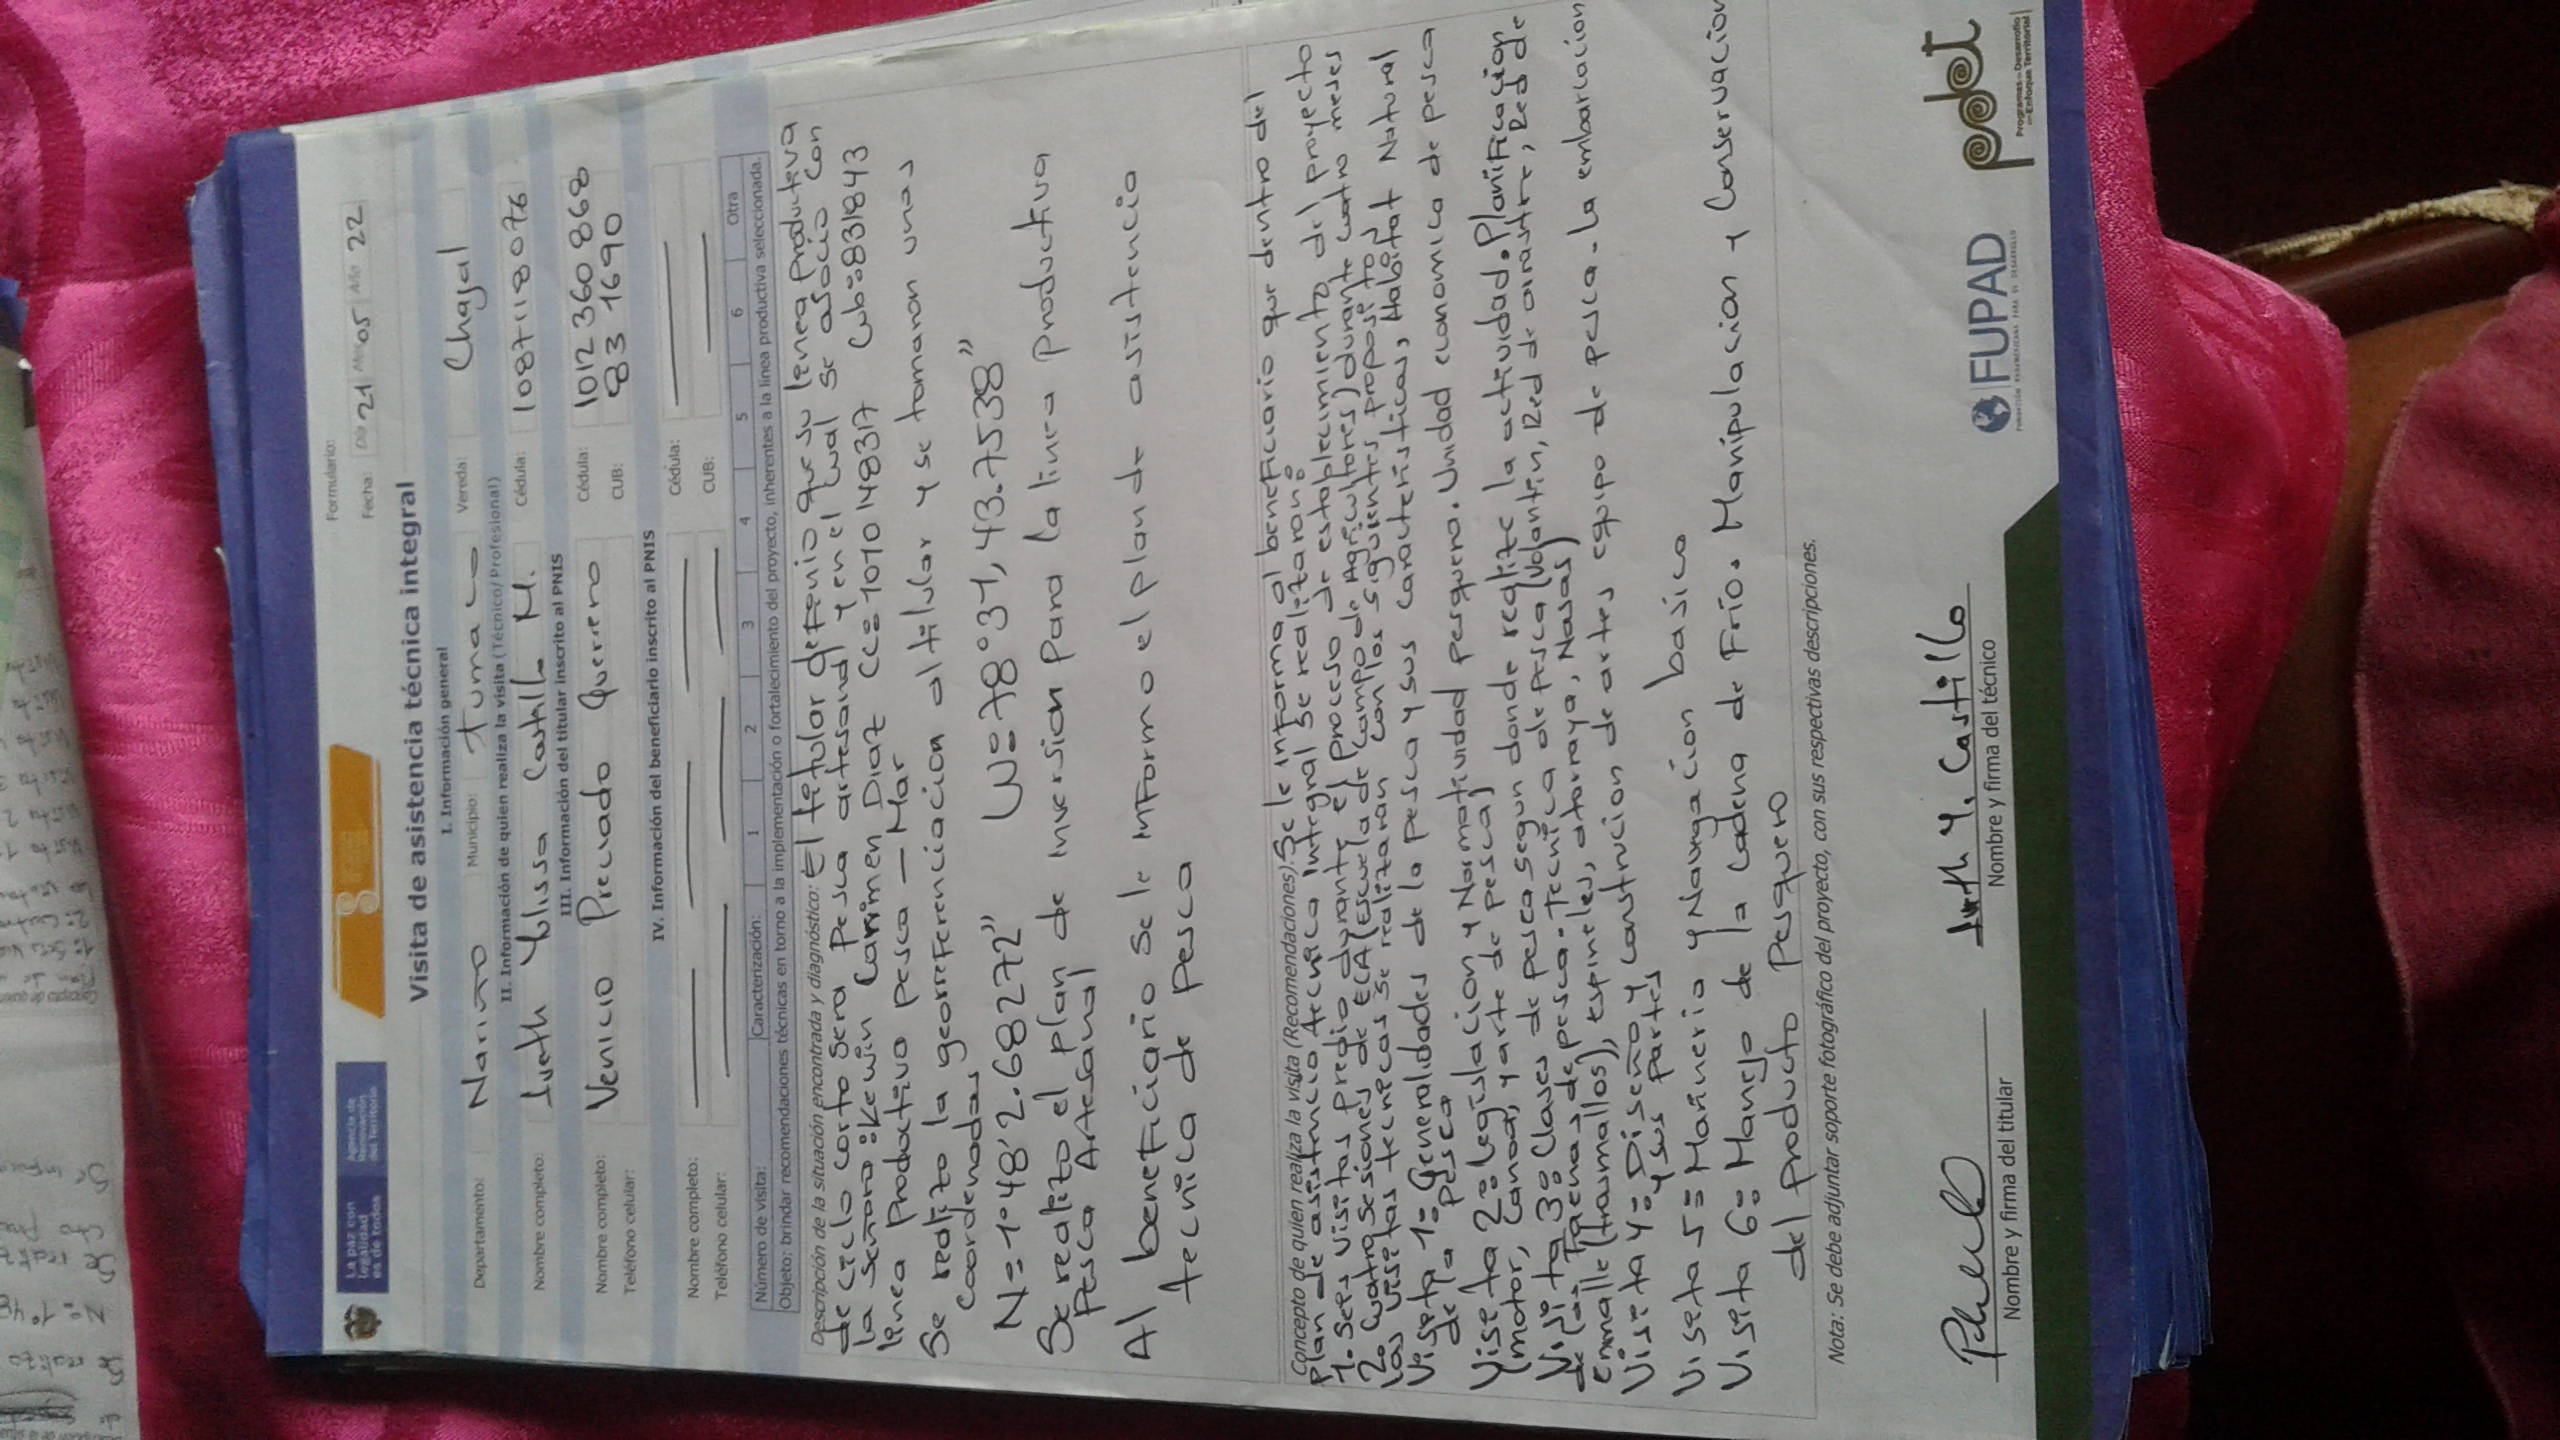 La paz con legalidad es de todos
Agencia de Renovación del Territorio
Formulario:
Fecha: Día 21 Mes 05 Año 22
Visita de asistencia técnica integral
I. Información general
Departamento: Nariño Municipio: Tumaco Vereda: Chajal
II. Información de quien realiza la visita (Técnico/Profesional)
Nombre completo: Iveth Yulissa Castillo M. Cédula: 1087118076
III. Información del titular inscrito al PNIS
Nombre completo: Venicio Preciado Querrero Cédula: 1012360868
Teléfono celular: CUB: 8331690
IV. Información del beneficiario inscrito al PNIS
Nombre completo: Cédula:
Teléfono celular: CUB:
Número de visita: Caracterización: 1 2 3 4 5 6 Otra
Objeto: brindar recomendaciones técnicas en torno a la implementación o fortalecimiento del proyecto, inherentes a la línea productiva seleccionada.
Descripción de la situación encontrada y diagnóstico: El titular definio que su linea productiva
de ciclo corto sera Pesca artesanal y en el cual se asocio con
la señora: Kewin Carimen Diaz CC=1010148317 Cub=8331843
linea Productivo pesca - Mar
Se realizo la georreFerenciacion al titular y se tomaron unas
coordenadas
N=1°48'2.68272" W=78°31,43.7538"
Se realizo el plan de inversion Para la linea Productiva
Pesca Artesanal
Al beneficiario se le inFormo el plan de asistencia
tecnica de pesca
Concepto de quien realiza la visita (Recomendaciones): Se le informa al beneficiario que dentro del
plan de asistencia tecnica integral se realizaron:
1. Seis visitas predio durante el proceso de establecimiento del proyecto
2. Cuatro sesiones de ECA (Escuela de Campo de Agricultores) durante cuatro meses
las visetas tecnecas se realizaran con los siguientes proposetos
Viseta 1: Generalidades de la pesca y sus caracteristicas, Habitat Natural
de la pesca
Viseta 2: legislacion y Normatividad pesquera. Unidad economica de pesca
(motor, Canoa, y arte de pesca)
Visita 3: Clases de pesca segun donde realize la actividad. Planificacion
de las faenas de pesca - tecnica de pesca (Volantin, Red de arrastre, Red de
enmalle (trasmallos), espineles, atarraya, Nasas)
Viseta 4: Diseño y construcion de artes equipo de pesca - la embarcacion
y sus partes
Viseta 5: Mariñeria y Navegacion basico
Viseta 6: Manejo de la Cadena de Frio. Manipulacion y Conservacion
del producto Pesquero
Nota: Se debe adjuntar soporte fotográfico del proyecto, con sus respectivas descripciones.
Iveth Y. Castillo
Nombre y firma del titular Nombre y firma del técnico
FUPAD
pdet
Programas de Desarrollo con Enfoque Territorial